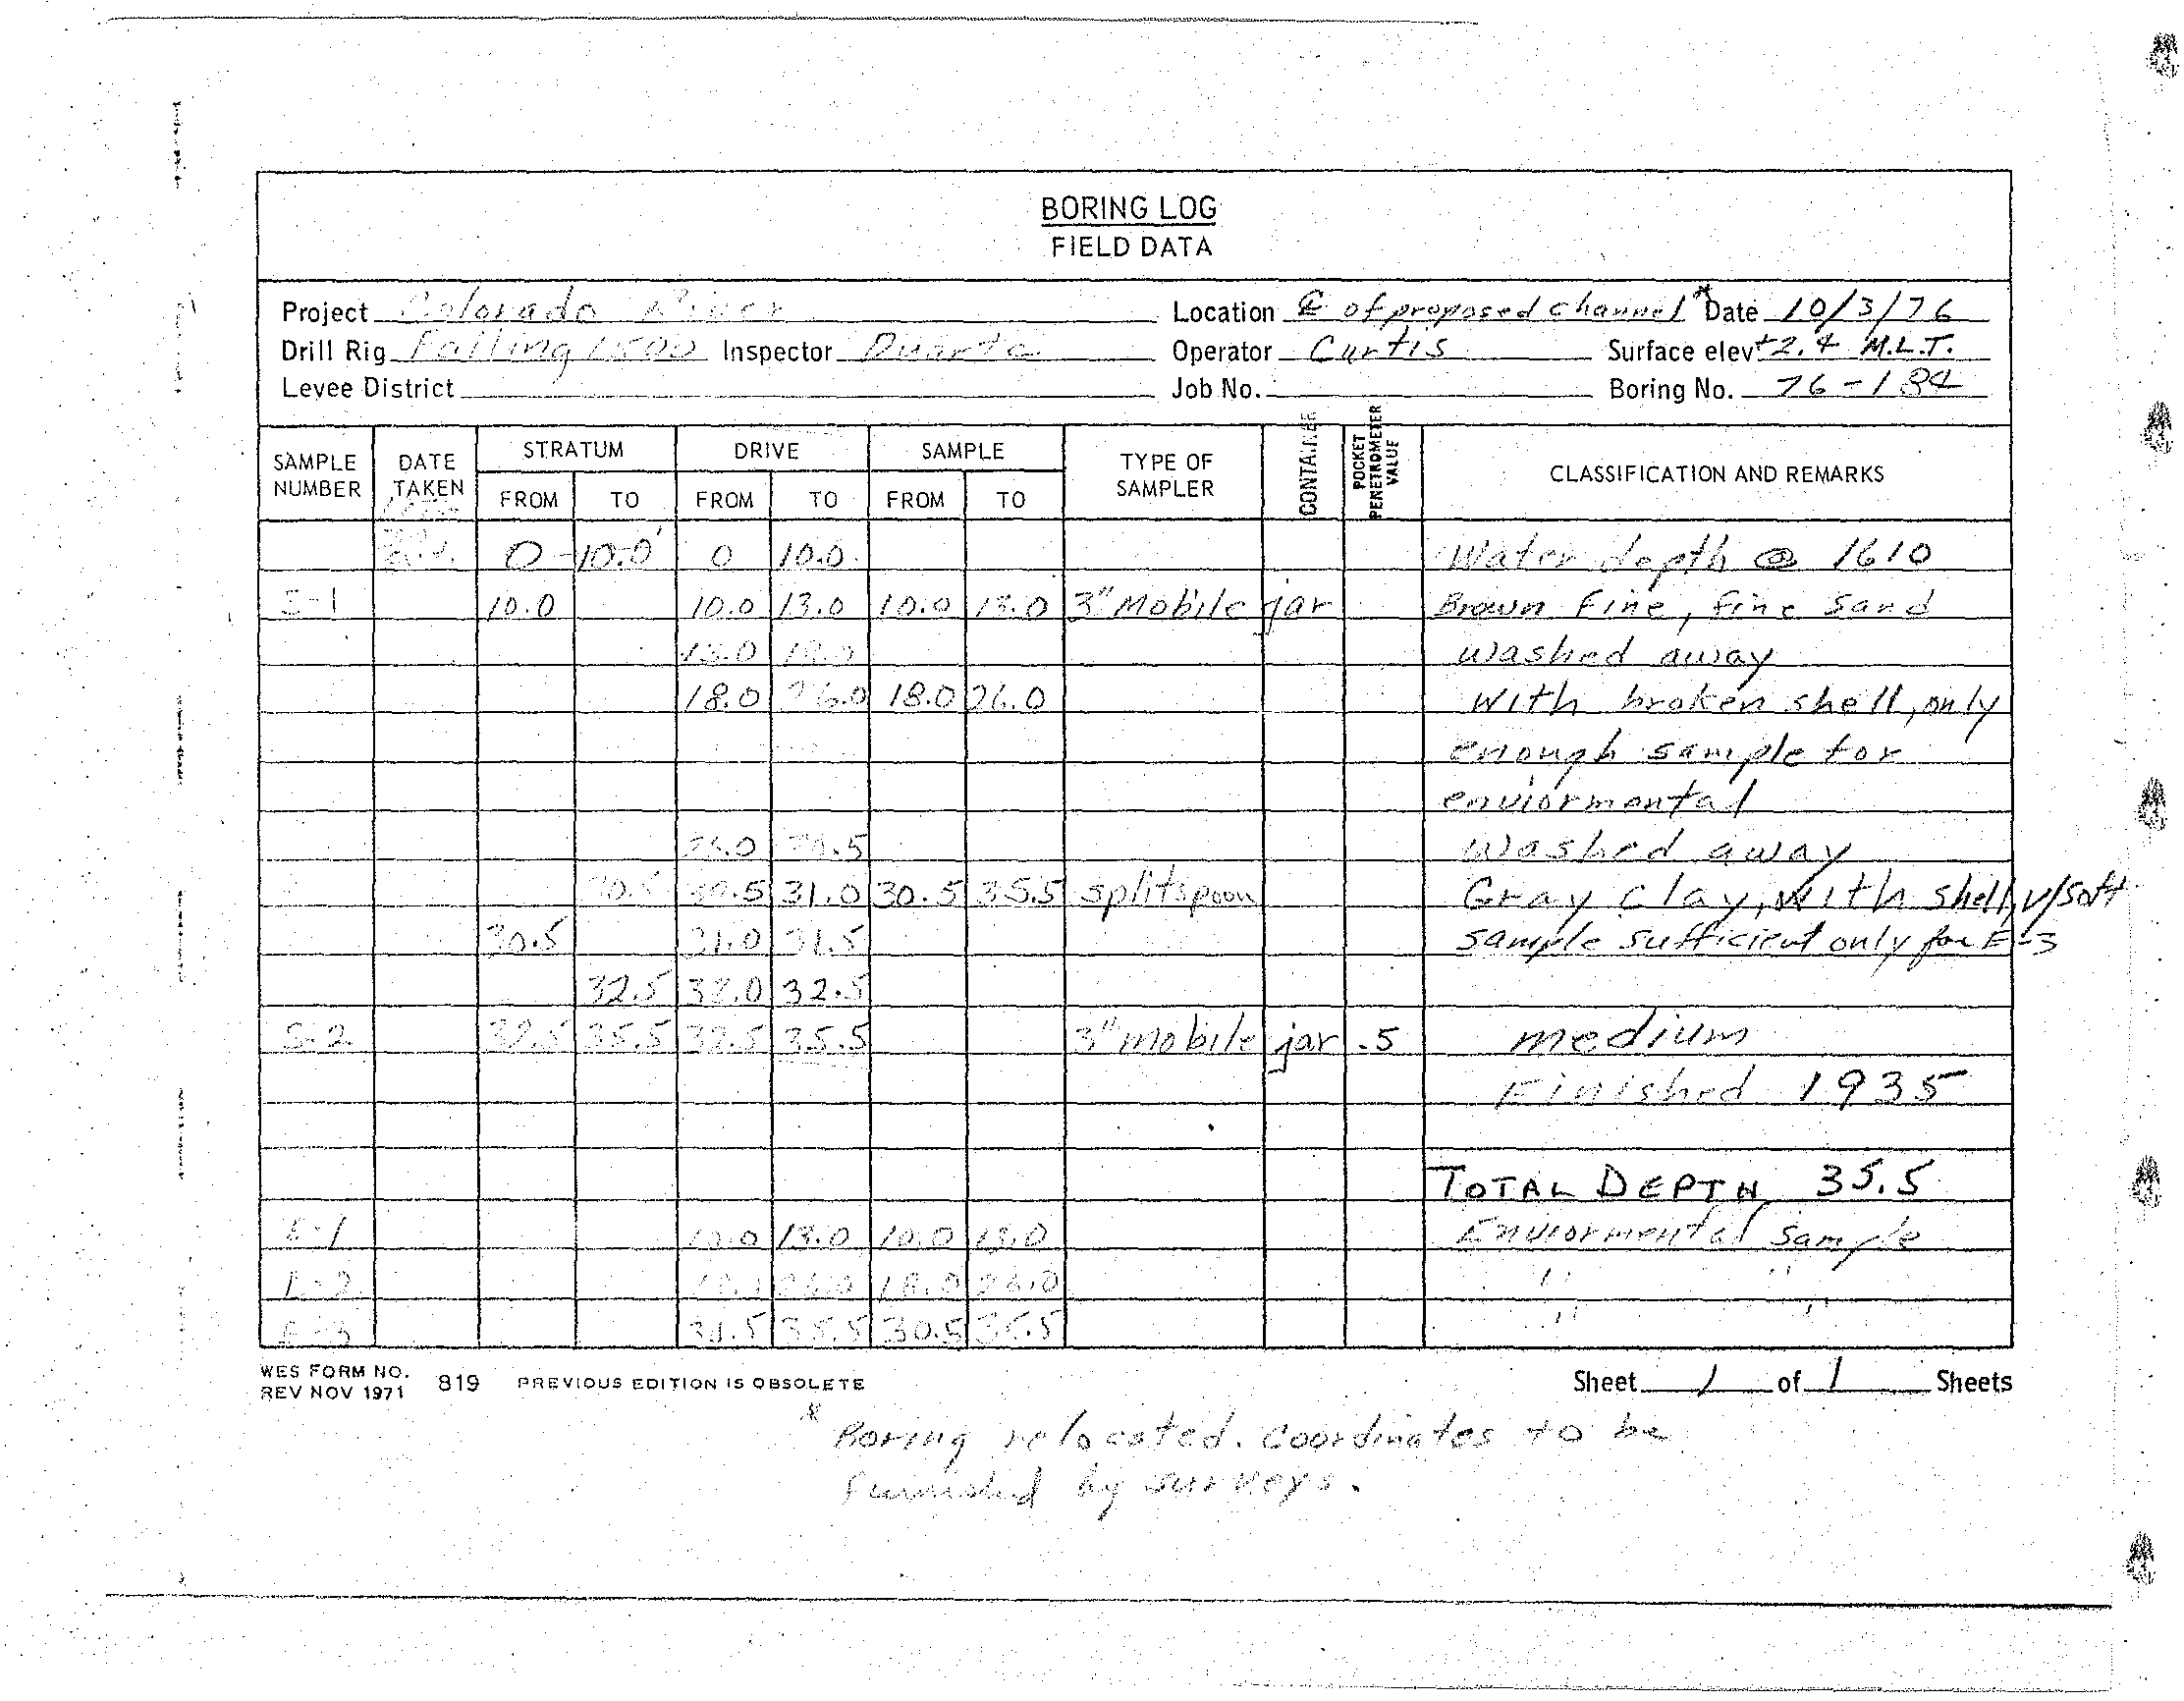 BORING LOG
FIELD DATA
Project Colorado River Location ℄ of proposed channel * Date 10/3/76
Drill Rig Failing 1500 Inspector Duarte Operator Curtis Surface elev +2.4 M.L.T.
Levee District Job No. Boring No. 76-184
SAMPLE NUMBER DATE TAKEN STRATUM DRIVE SAMPLE TYPE OF SAMPLER CONTAINER POCKET PENETROMETER VALUE CLASSIFICATION AND REMARKS
FROM TO FROM TO FROM TO
0 10.0' 0 10.0 Water depth @ 1610
S-1 10.0 10.0 13.0 10.0 13.0 3" Mobile jar Brown Fine, fine Sand
13.0 18.0 washed away
18.0 26.0 18.0 26.0 with broken shell, only
enough sample for
enviormental
26.0 30.5 washed away
30.5 30.5 31.0 30.5 35.5 splitspoon Gray Clay, with shell, v/soft
30.5 31.0 31.5 sample sufficient only for E-3
32.5 32.0 32.5
S-2 32.5 35.5 32.5 35.5 3" mobile jar .5 medium
Finished 1935
TOTAL DEPTH 35.5
E-1 10.0 13.0 10.0 13.0 Enviormental Sample
E-2 18.0 26.0 18.0 26.0 " "
E-3 30.5 35.5 30.5 35.5 " "
WES FORM NO. 819 PREVIOUS EDITION IS OBSOLETE Sheet 1 of 1 Sheets
REV NOV 1971
* Boring relocated. Coordinates to be
furnished by surveys.